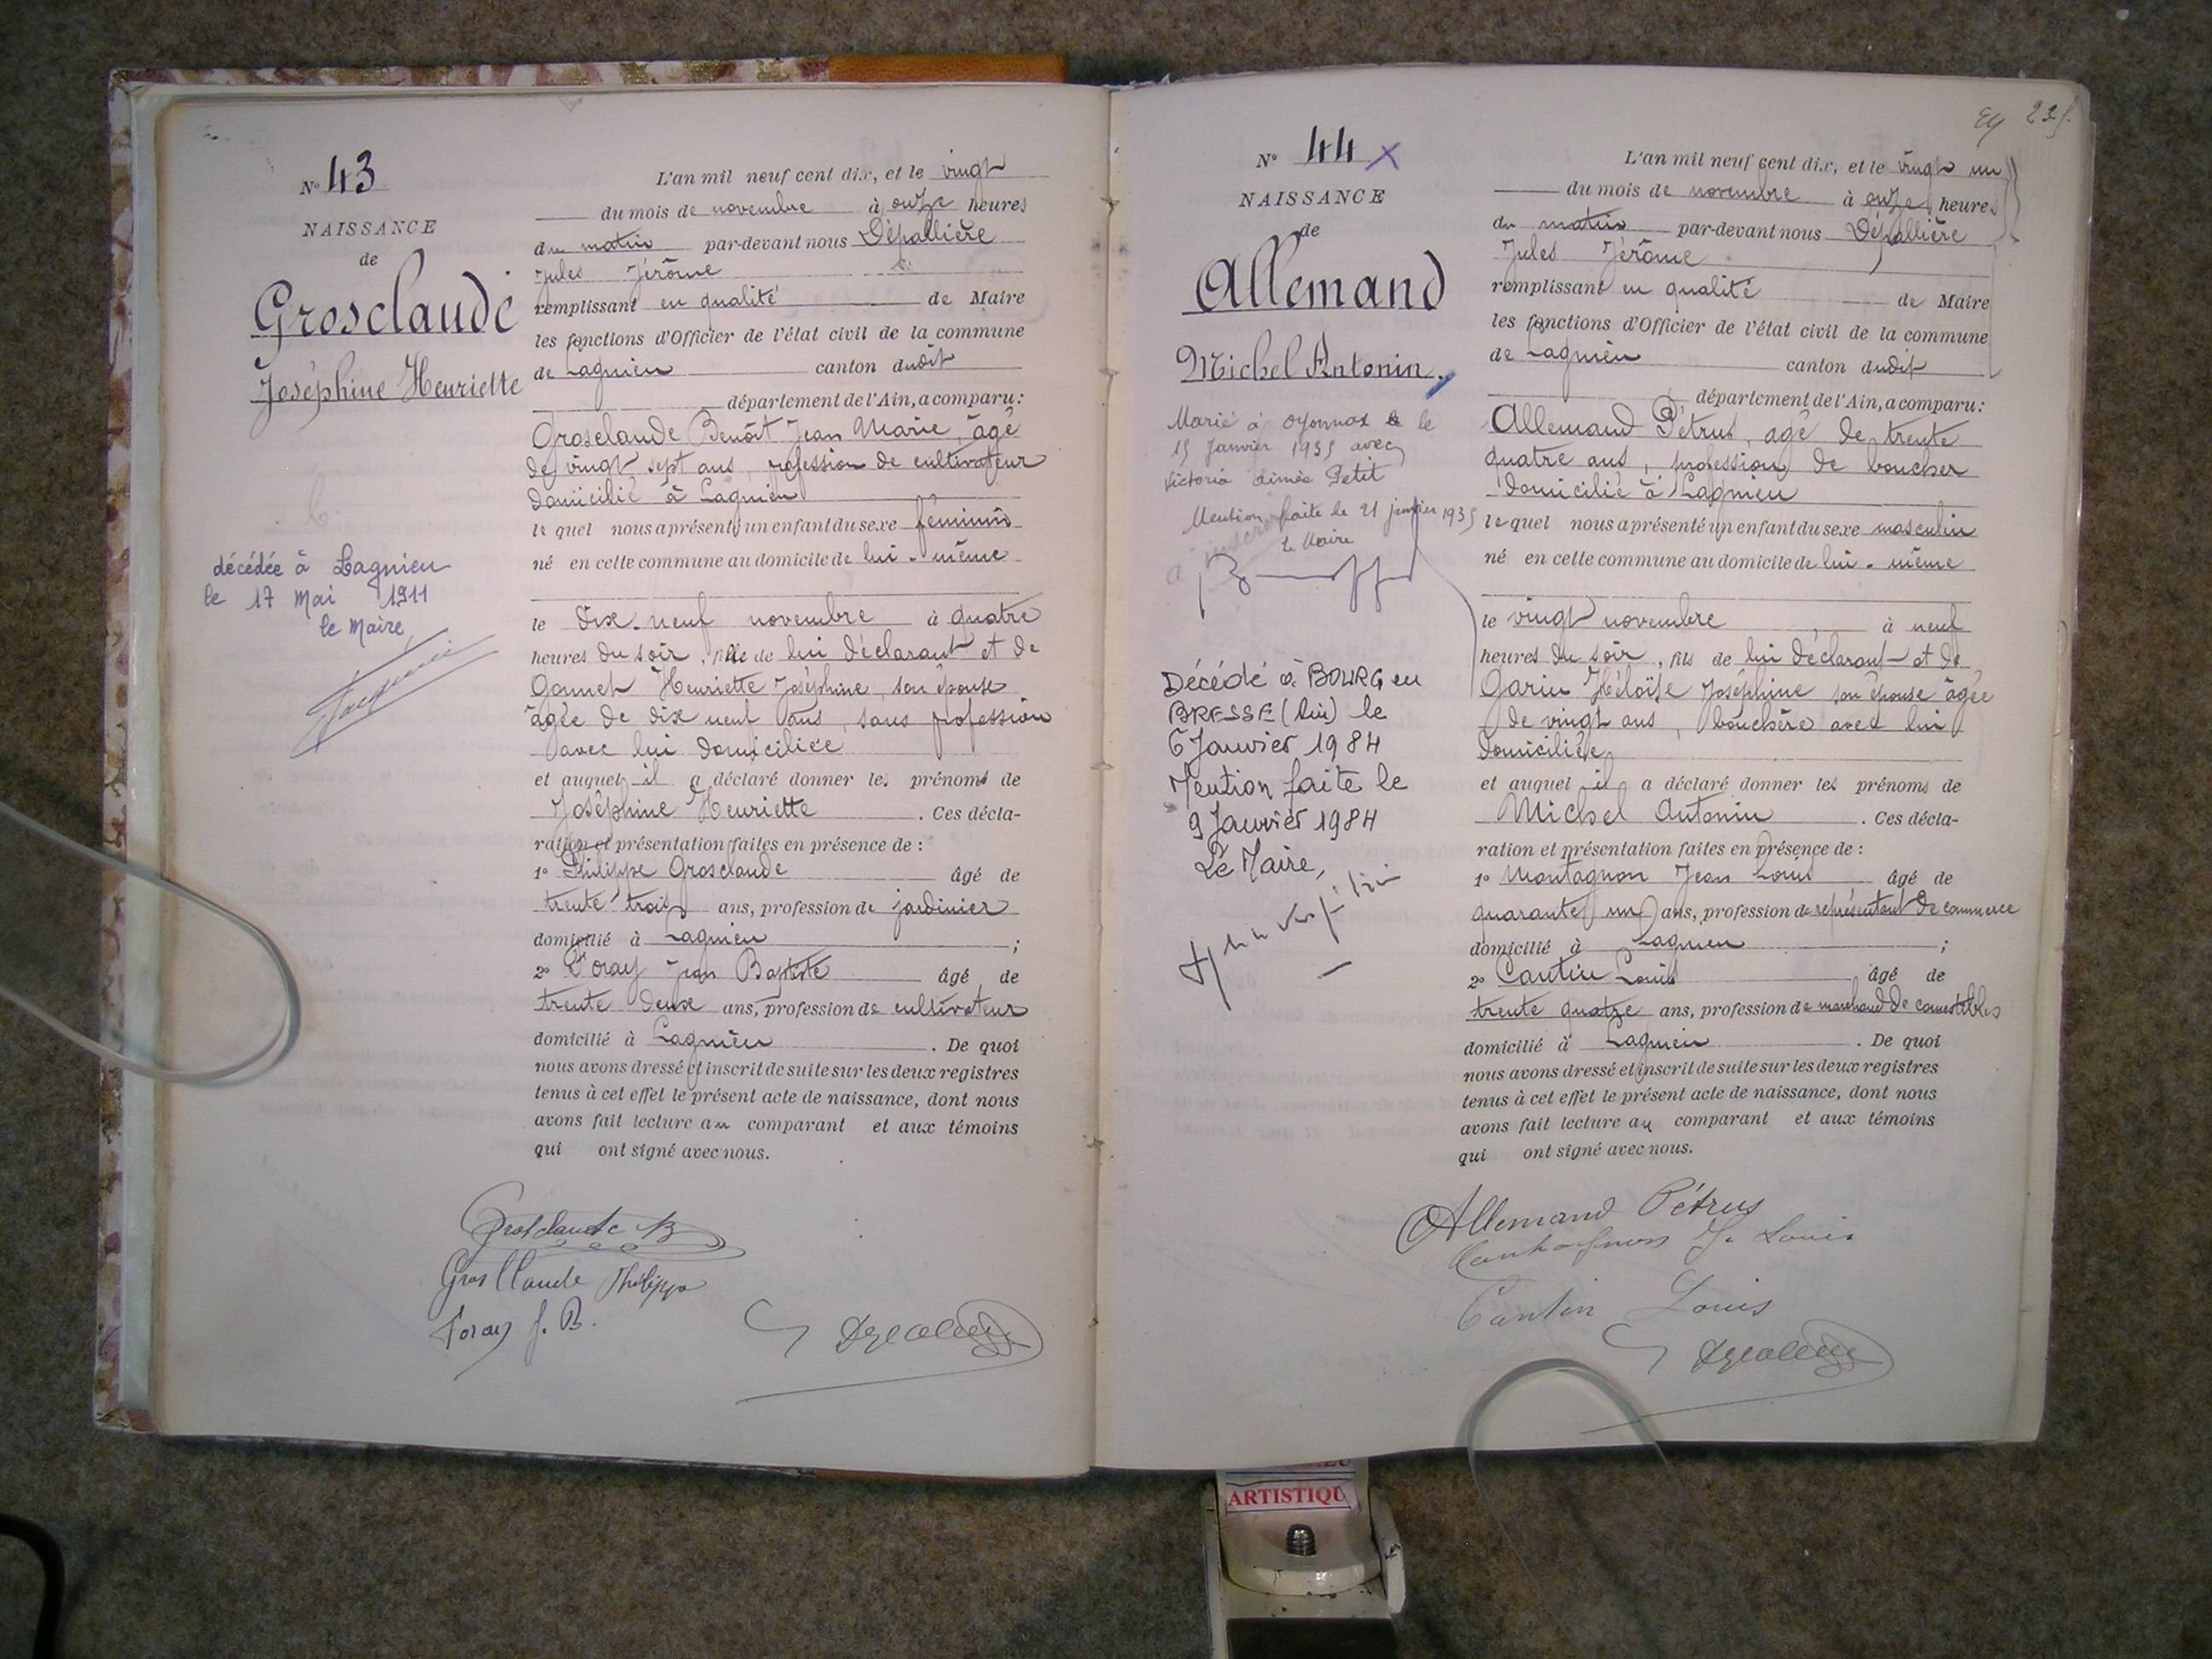 N° 43
NAISSANCE
de
Grosclaude
Joséphine Henriette
décédée à Lagnieu
le 17 Mai 1911
le Maire
L'an mil neuf cent dix, et le vingt
du mois de novembre à onze heures
du matin par-devant nous Dépallière
Jules Jérôme
remplissant en qualité de Maire
les fonctions d'Officier de l'état civil de la commune
de Lagnieu canton dudit
département de l'Ain, a comparu:
Grosclaude Benoît Jean Marie, âgé
de vingt sept ans, profession de cultivateur
domicilié à Lagnieu
le quel nous a présenté un enfant du sexe féminin
né en cette commune au domicile de lui-même
le dix-neuf novembre à quatre
heures du soir, fille de lui déclarant et de
Gonnet Henriette Joséphine, son épouse
âgée de dix neuf ans, sans profession
avec lui domiciliée
et auquel il a déclaré donner les prénoms de
Joséphine Henriette. Ces décla-
ration et présentation faites en présence de :
1° Philippe Grosclaude âgé de
trente trois ans, profession de jardinier
domicilié à Lagnieu ;
2° Foray Jean Baptiste âgé de
trente deux ans, profession de cultivateur
domicilié à Lagnieu. De quoi
nous avons dressé et inscrit de suite sur les deux registres
tenus à cet effet le présent acte de naissance, dont nous
avons fait lecture au comparant et aux témoins
qui ont signé avec nous.
Grosclaude B
Grosclaude Philippe
Foray J. B.
23
N° 44 X
NAISSANCE
de
Allemand
Michel Antonin
Marié à Oyonnax le
15 Janvier 1935 avec
Victoria Aimée Petit
Mention faite le 21 janvier 1935
Le Maire
Décédé à BOURG en
BRESSE (Ain) le
6 Janvier 1984
Mention faite le
9 Janvier 1984
Le Maire,
L'an mil neuf cent dix, et le vingt un
du mois de novembre à onze heures
du matin par-devant nous Dépallière
Jules Jérôme
remplissant en qualité de Maire
les fonctions d'Officier de l'état civil de la commune
de Lagnieu canton dudit
département de l'Ain, a comparu:
Allemand Pétrus, âgé de trente
quatre ans, profession de boucher
domicilié à Lagnieu
le quel nous a présenté un enfant du sexe masculin
né en cette commune au domicile de lui-même
le vingt novembre à neuf
heures du soir, fils de lui déclarant et de
Garin Héloïse Joséphine son épouse âgée
de vingt ans, bouchère avec lui
domiciliée
et auquel il a déclaré donner les prénoms de
Michel Antonin. Ces décla-
ration et présentation faites en présence de :
1° Montagnon Jean Louis âgé de
quarante un ans, profession de représentant de commerce
domicilié à Lagnieu ;
2° Cantin Louis âgé de
trente quatre ans, profession de marchand de comestibles
domicilié à Lagnieu. De quoi
nous avons dressé et inscrit de suite sur les deux registres
tenus à cet effet le présent acte de naissance, dont nous
avons fait lecture au comparant et aux témoins
qui ont signé avec nous.
Allemand Pétrus
Montagnon J. Louis
Cantin Louis
ARTISTIQU